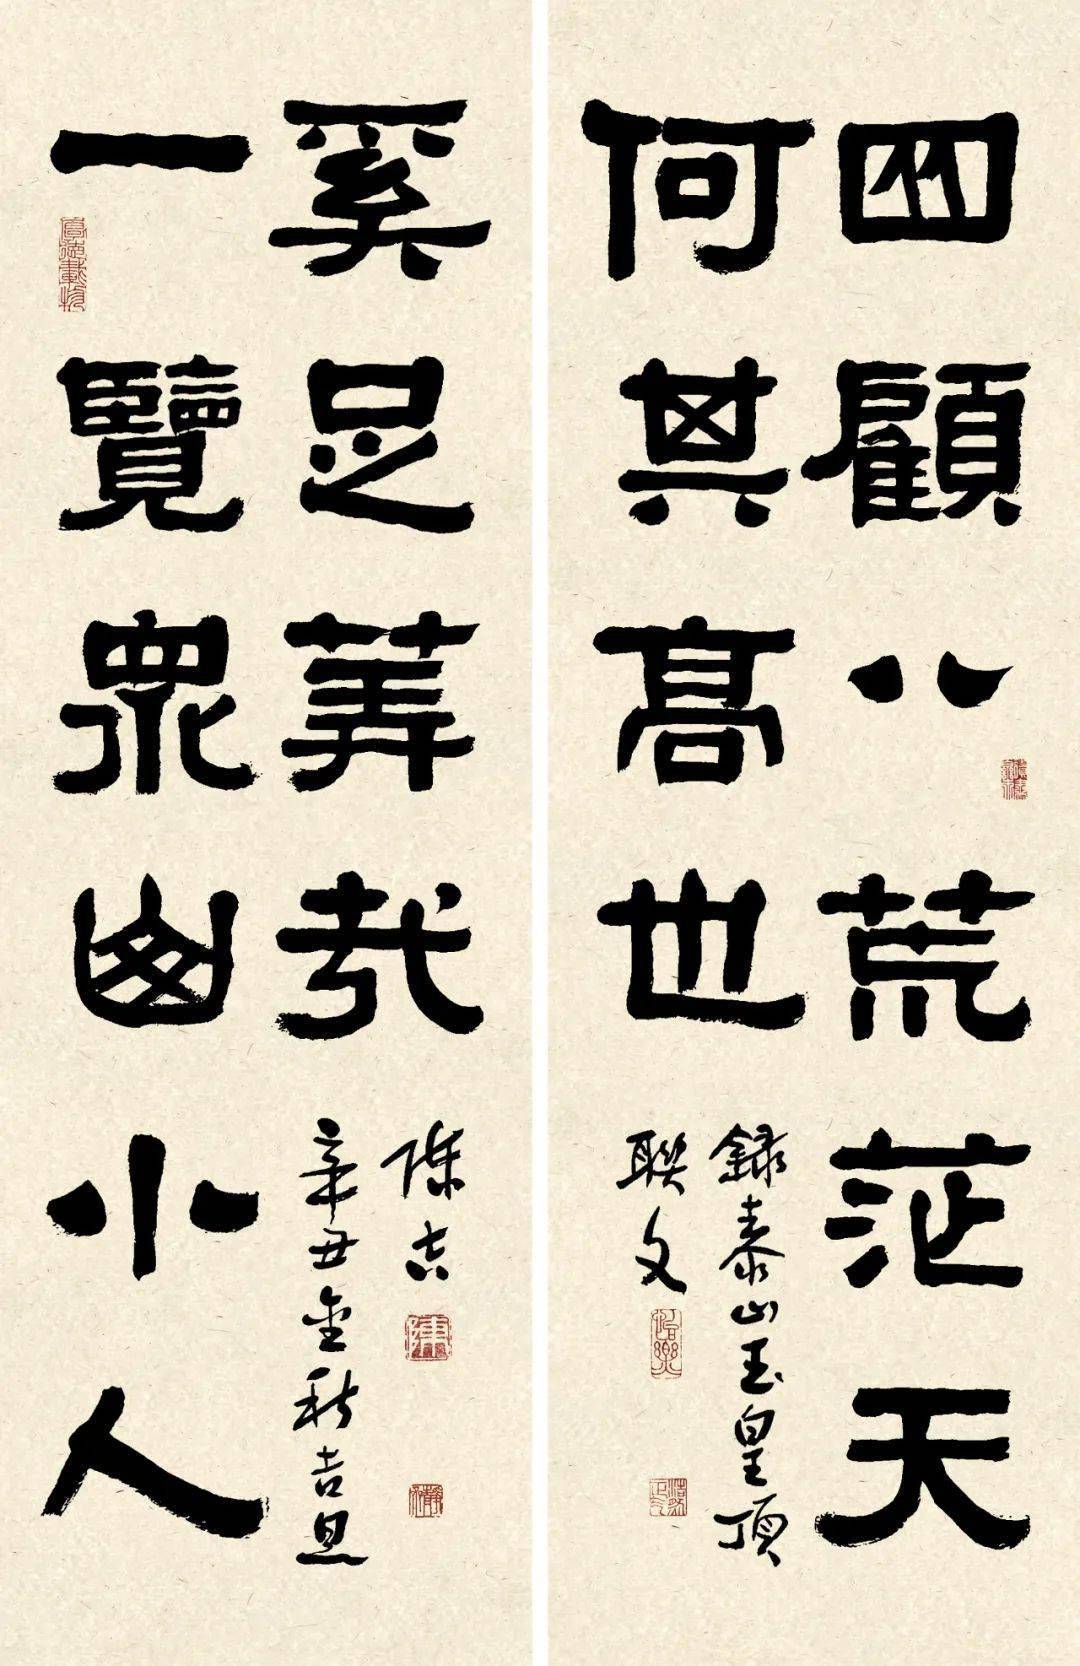 四顧八荒茫天
何其高也
錄泰山玉皇頂
聯文
一覽眾山小人
厚德載物
奚足算哉
辛丑金秋吉旦
陳吉